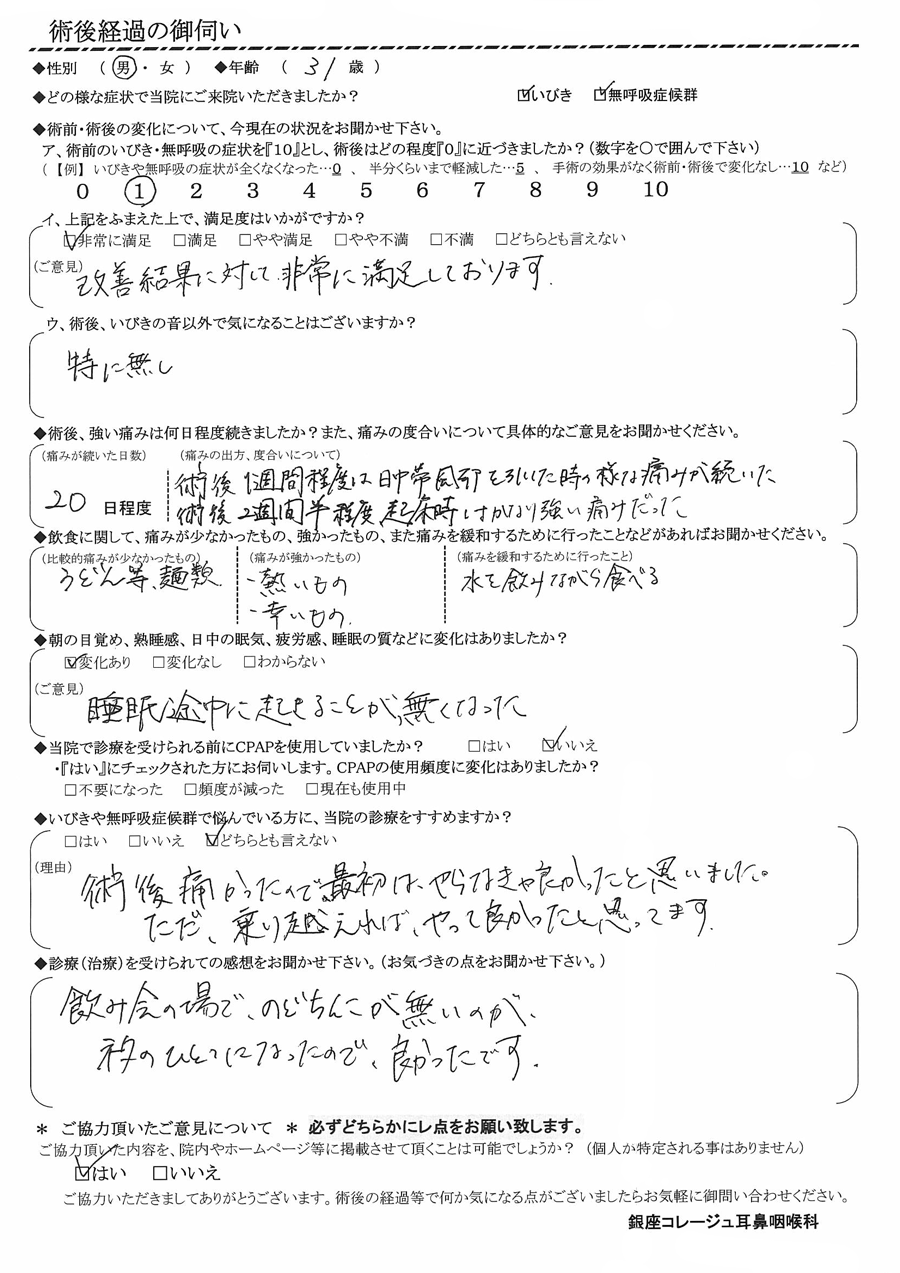 術後経過の御伺い
◆性別 (男・女) ◆年齢 (31歳)
◆どの様な症状で当院にご来院いただきましたか? ☑いびき ☑無呼吸症候群
◆術前・術後の変化について、今現在の状況をお聞かせ下さい。
ア、術前のいびき・無呼吸の症状を『10』とし、術後はどの程度『0』に近づきましたか?(数字を○で囲んで下さい)
(【例】いびきや無呼吸の症状が全くなくなった…0 、 半分くらいまで軽減した…5 、 手術の効果がなく術前・術後で変化なし…10 など)
0 1 2 3 4 5 6 7 8 9 10
イ、上記をふまえた上で、満足度はいかがですか?
☑非常に満足 □満足 □やや満足 □やや不満 □不満 □どちらとも言えない
(ご意見) 改善結果に対して、非常に満足しております.
ウ、術後、いびきの音以外で気になることはございますか?
特に無し
◆術後、強い痛みは何日程度続きましたか?また、痛みの度合いについて具体的なご意見をお聞かせください。
(痛みが続いた日数) (痛みの出方、度合いについて)
術後1週間程度は日中帯風邪を引いた時の様な痛みが続いた
20 日程度 術後2週間半程度起床時はかなり強い痛みだった
◆飲食に関して、痛みが少なかったもの、強かったもの、また痛みを緩和するために行ったことなどがあればお聞かせください。
(比較的痛みが少なかったもの) (痛みが強かったもの) (痛みを緩和するために行ったこと)
うどん等、麺類. ・熱いもの 水を飲みながら食べる
・辛いもの.
◆朝の目覚め、熟睡感、日中の眠気、疲労感、睡眠の質などに変化はありましたか?
☑変化あり □変化なし □わからない
(ご意見) 睡眠途中に起きることが、無くなった
◆当院で診療を受けられる前にCPAPを使用していましたか? □はい ☑いいえ
・『はい』にチェックされた方にお伺いします。CPAPの使用頻度に変化はありましたか?
□不要になった □頻度が減った □現在も使用中
◆いびきや無呼吸症候群で悩んでいる方に、当院の診療をすすめますか?
□はい □いいえ ☑どちらとも言えない
(理由) 術後痛かったので、最初は、やらなきゃ良かったと思いました。
ただ、乗り越えれば、やって良かったと思ってます.
◆診療(治療)を受けられての感想をお聞かせ下さい。(お気づきの点をお聞かせ下さい。)
飲み会の場で、のどちんこが無いのが、
ネタのひとつになったので、良かったです.
＊ ご協力頂いたご意見について ＊ 必ずどちらかにレ点をお願い致します。
ご協力頂いた内容を、院内やホームページ等に掲載させて頂くことは可能でしょうか? (個人が特定される事はありません)
☑はい □いいえ
ご協力いただきましてありがとうございます。術後の経過等で何か気になる点がございましたらお気軽に御問い合わせください。
銀座コレージュ耳鼻咽喉科